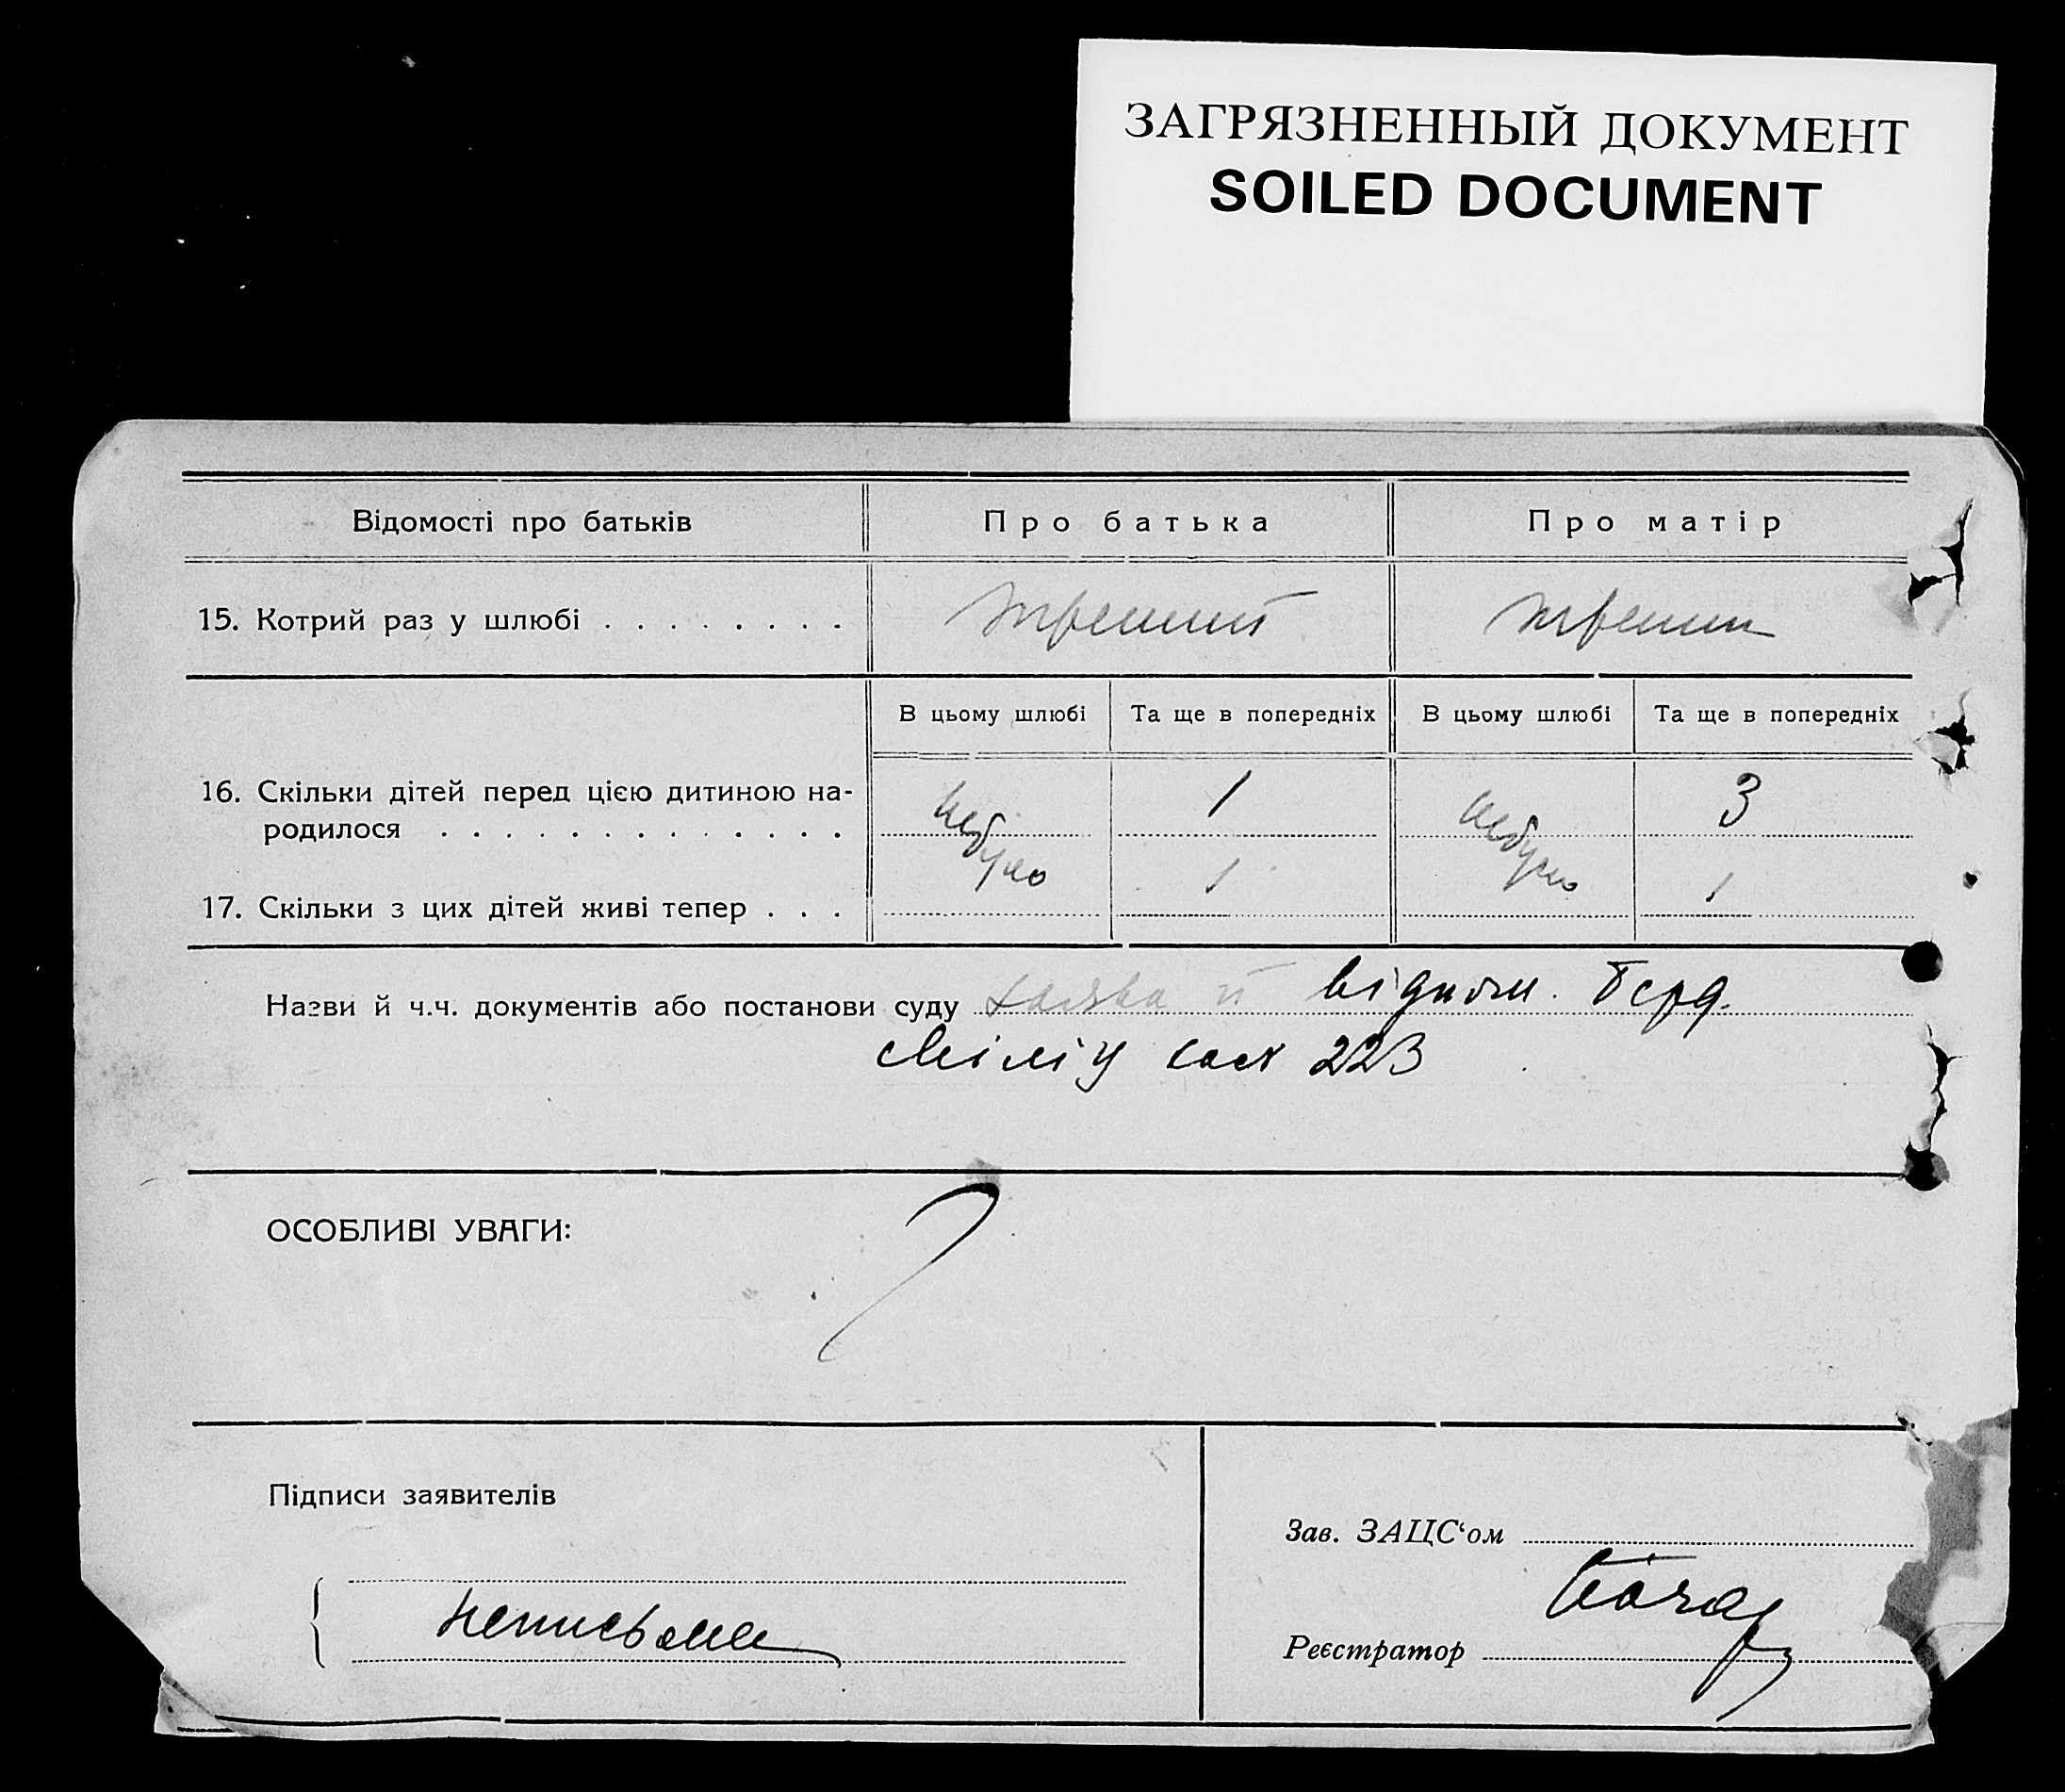 ЗАГРЯЗНЕННЫЙ ДОКУМЕНТ
SOILED DOCUMENT
Відомості про батьків Про батька Про матір
15. Котрий раз у шлюбі
В цьому шлюбі Та ще в попередніх В цьому шлюбі Та ще в попередніх
16. Скільки дітей перед цією дитиною на-
родилося небуло 1 небуло 3
17. Скільки з цих дітей живі тепер 1 1
Назви й ч.ч. документів або постанови суду заява й
223
ОСОБЛИВІ УВАГИ:
Підписи заявителів
Зав. ЗАЦС‘ом
неписьмен
Реєстратор